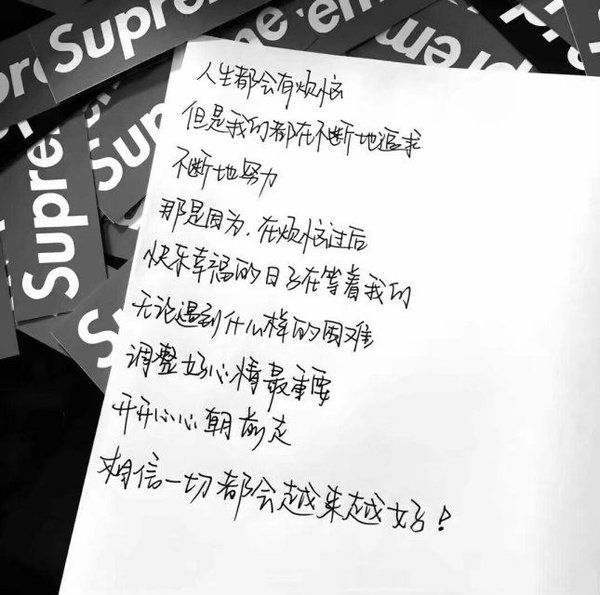 Supreme
eme
Supreme
Supreme
人生都会有烦恼
但是我们都在不断地追求
不断地努力
那是因为,在烦恼过后
快乐幸福的日子在等着我们
无论遇到什么样的困难
调整好心情最重要
开开心心朝前走
相信一切都会越来越好!